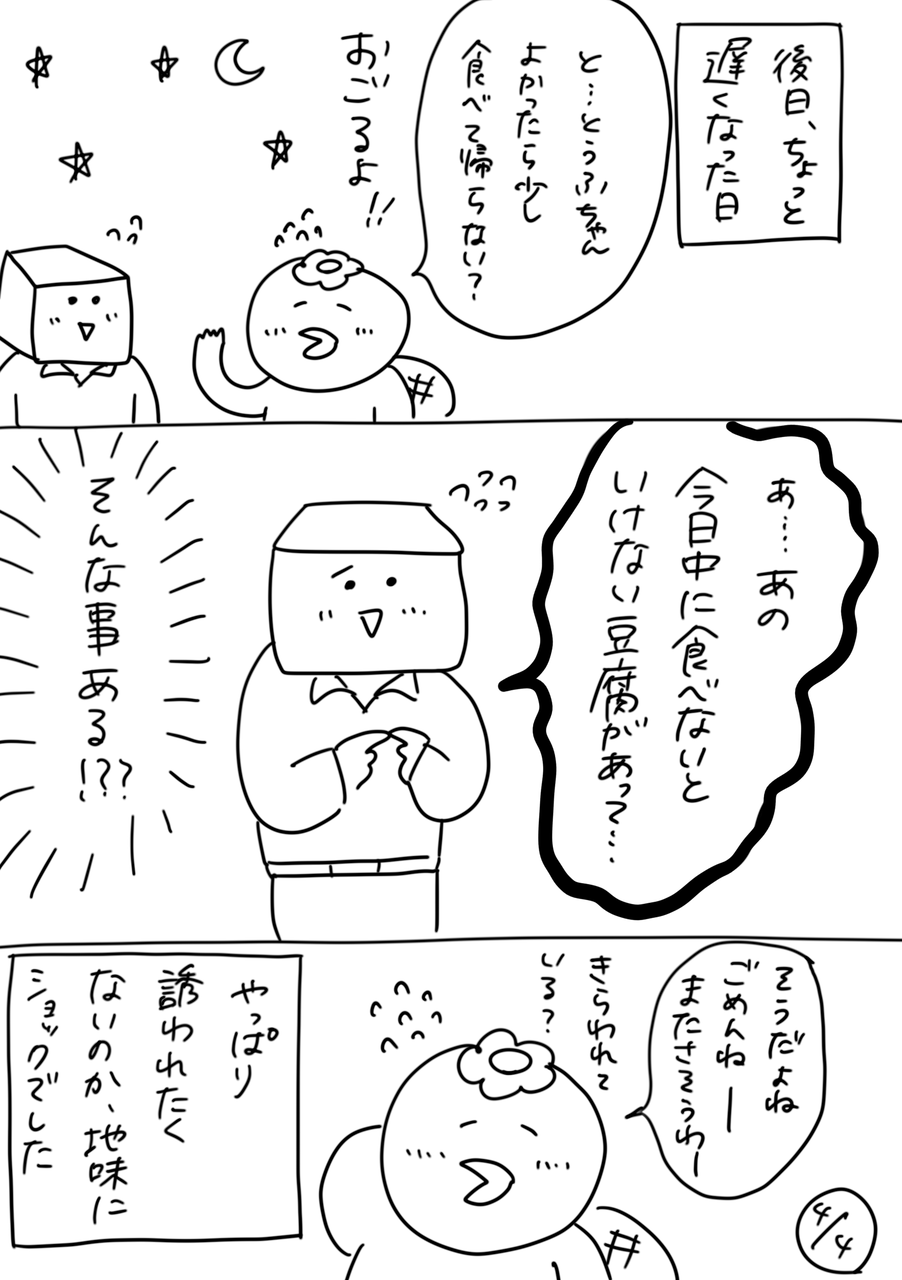 後日、ちょっと
遅くなった日
と…とうふちゃん
よかったら少し
食べて帰らない?
おごるよ!!
あ…あの
今日中に食べないと
いけない豆腐があって…
そんな事ある!??
そうだよね
ごめんねー
またさそうわー
きらわれて
いる?
やっぱり
誘われたく
ないのか、地味に
ショックでした
4/4